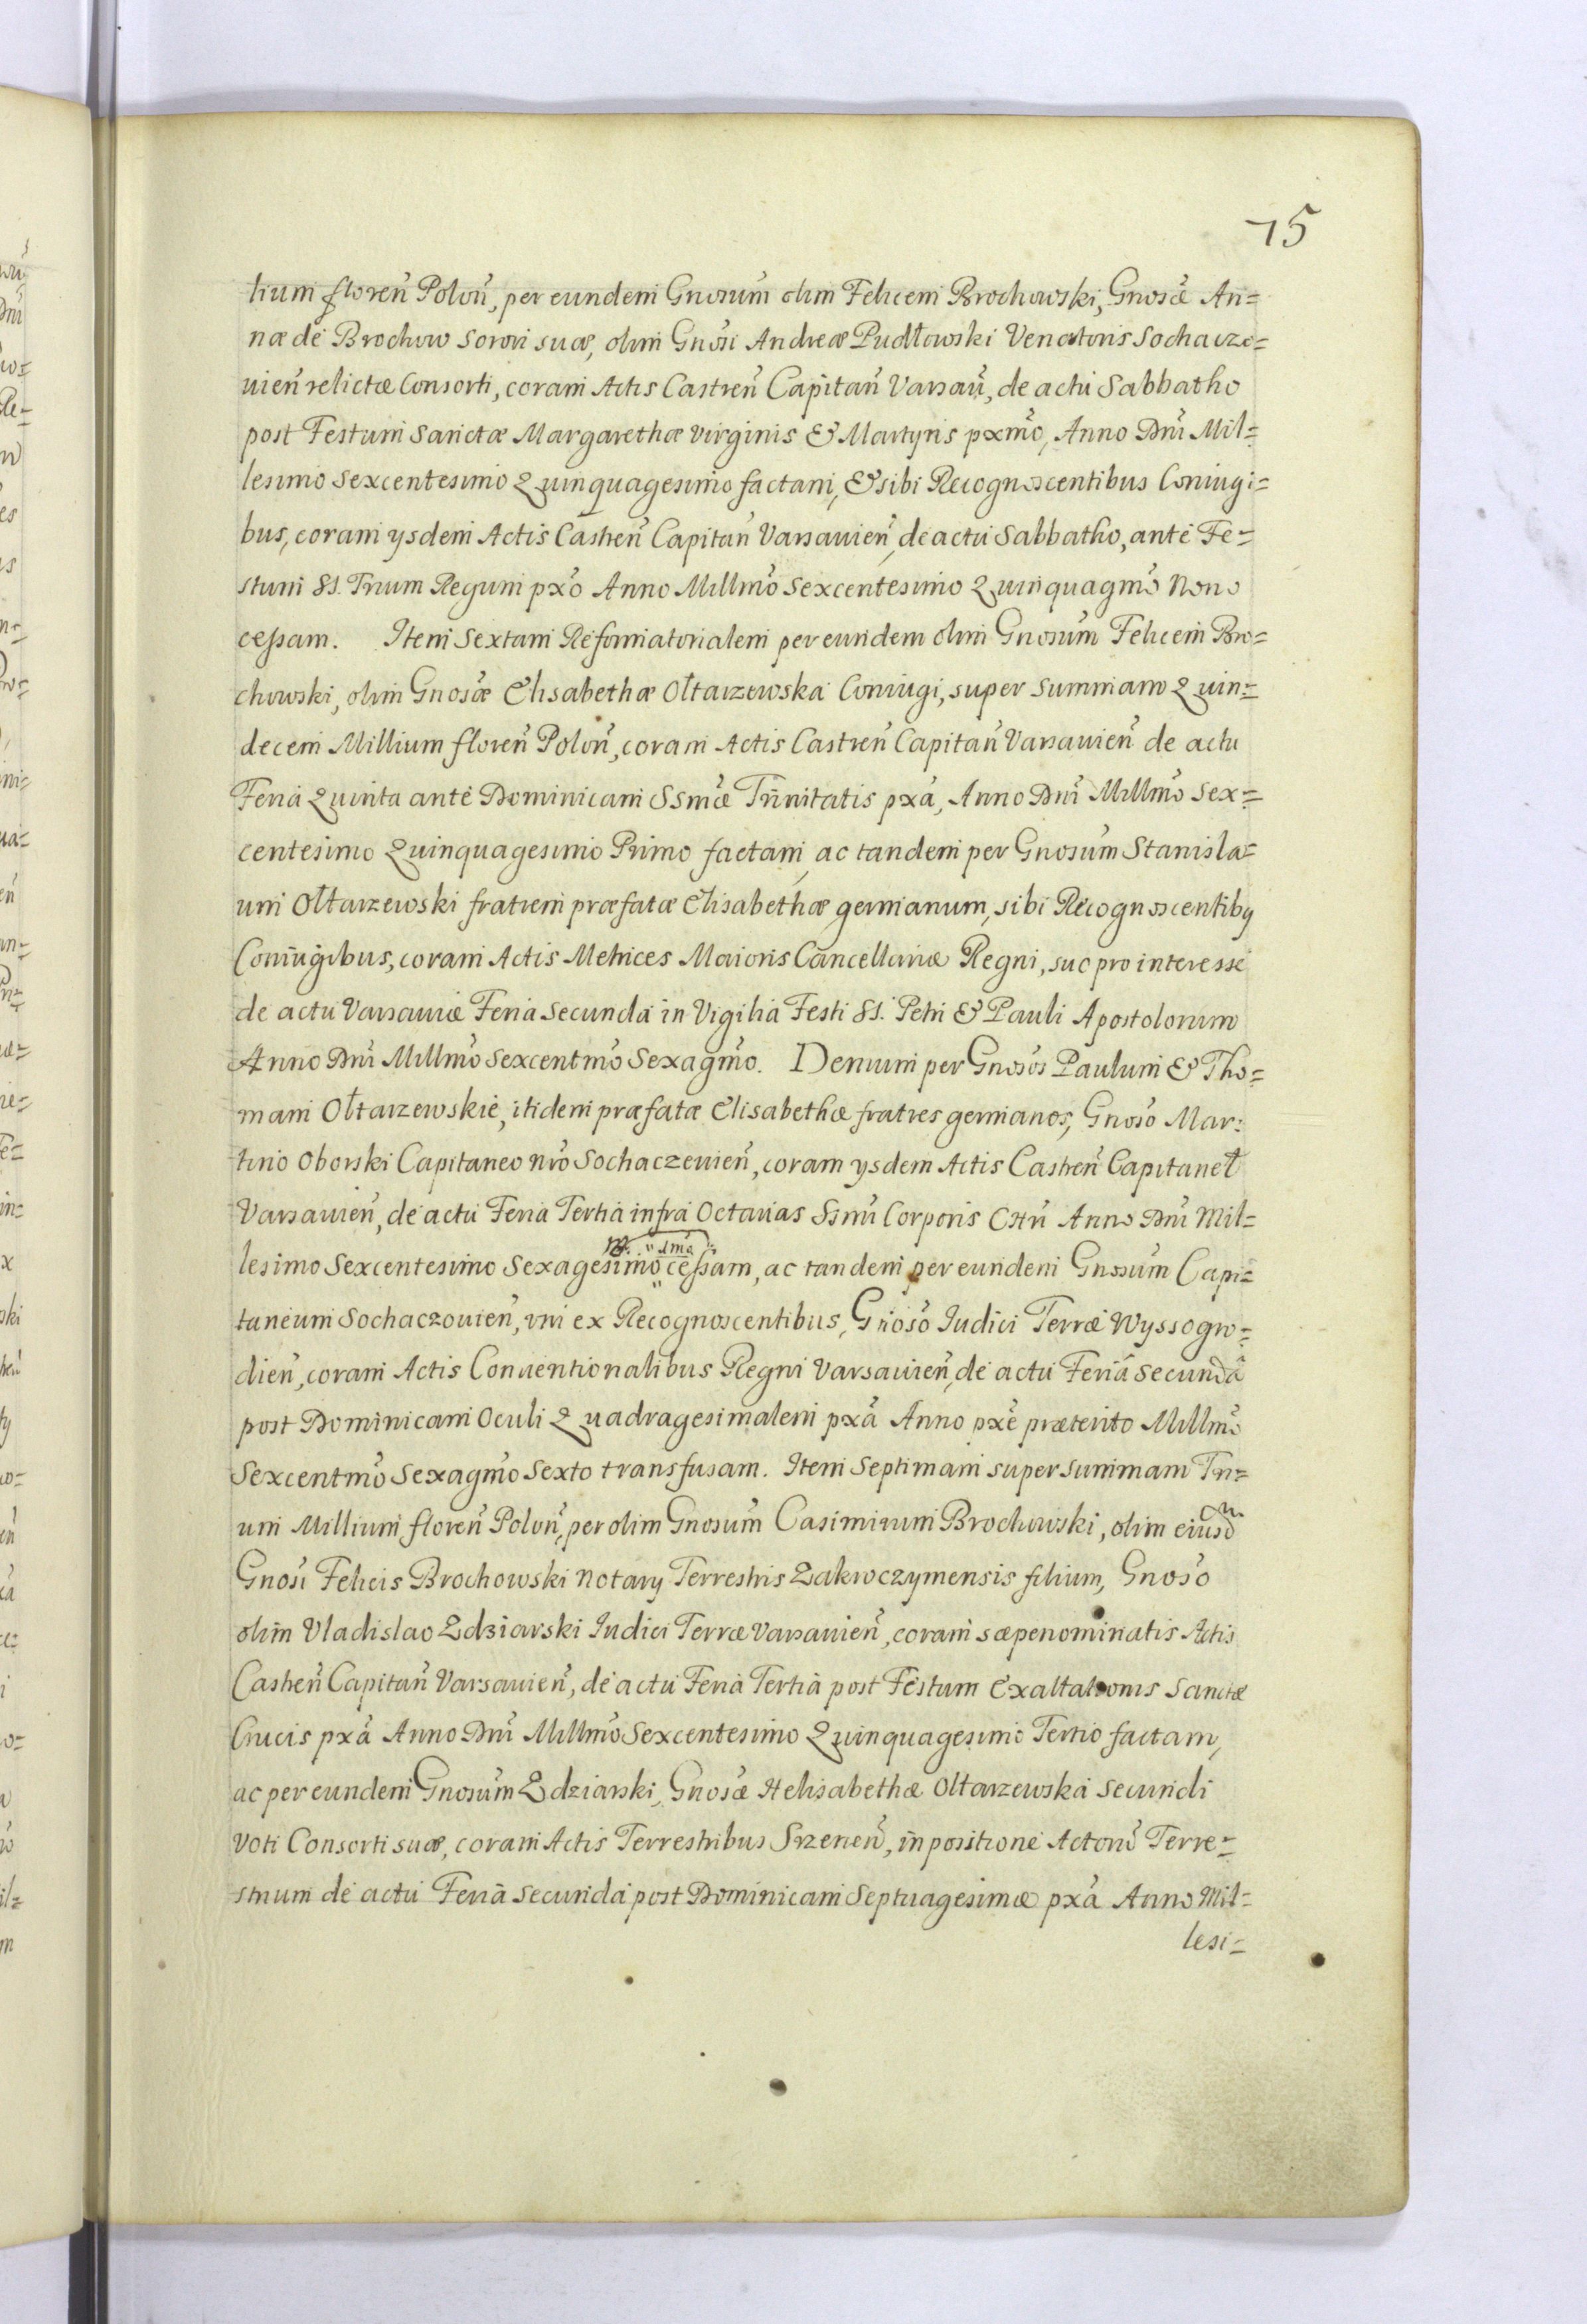 75
lium floreñ Poloñ, per eundem Gnosum olim Felicem Brochowski, Gnosæ An=
næ de Brochow Sorori suæ, olim Gnosi Andreæ Pudłowski Venatoris Sochacze=
uieñ relictæ Consorti, coram Actis Castreñ Capitañ Varsaū, de actu Sabbatho
post Festum Sanctæ Margarethæ Virginis & Martyris pxmo, Anno Dni Mil=
lesimo Sexcentesimo Quinquagesimo factam, & sibi Recognoscentibus Coniugi=
bus, coram ysdem Actis Castreñ Capitañ Varsauieñ, de actu Sabbatho, ante Fe=
stum SS. Trium Regum pxo Anno Millmo Sexcentesimo Quinquagmo Nono
cessam. Item Sextam Reformatorialem per eundem olim Gnosum Felicem Bro=
chowski, olim Gnosæ Elisabethæ Ołtarzewska Coniugi, super Summam Quin=
decem Millium floreñ Poloñ, coram Actis Castreñ Capitañ Varsauieñ de actu
Feria Quinta ante Dominicam SSmæ Trinitatis pxa, Anno Dni Millmo Sex=
centesimo Quinquagesimo Primo factam, ac tandem per Gnosum Stanisla=
um Ołtarzewski fratrem præfatæ Elisabethæ germanum, sibi Recognoscentiby
Coniugibus, coram Actis Metrices Maioris Cancellariæ Regni, suo pro interesse
de actu Varsauiæ Feria Secunda in Vigilia Festi SS. Petri & Pauli Apostolorum
Anno Dni Millmo Sexcentmo Sexagmo. Demum per Gnosos Paulum & Tho=
mam Ołtarzewskie, itidem præfatæ Elisabethæ fratres germanos, Gnoso Mar=
tino Oborski Capitaneo nro Sochaczeuieñ, coram ysdem Actis Castreñ Capitanel
Varsauieñ, de actu Feria Tertia infra Octauas SSmi Corporis CHri Anno Dni Mil=
lesimo Sexcentesimo Sexagesimo cessam, ac tandem per eundem Gnosum Capi=
taneum Sochaczouieñ, vni ex Recognoscentibus, Gnoso Iudici Terræ Wyssogro=
dieñ, coram Actis Conuentionalibus Regni Varsauieñ, de actu Feria Secunda
post Dominicam Oculi Quadragesimalem pxa Anno pxe præterito Millmo
Sexcentmo Sexagmo Sexto transfusam. Item Septimam super Summam Tri=
um Millium floreñ Poloñ, per olim Gnosum Casimirum Brochowski, olim eiusd
Gnosi Felicis Brochowski Notary Terrestris Zakroczymensis filium, Gnoso
olim Vladislao Zdziarski Iudici Terræ Varsauieñ, coram sæpenominatis Actis
Castreñ Capitañ Varsauieñ, de actu Feria Tertia post Festum Exaltationis Sanctæ
Crucis pxa Anno Dni Millmo Sexcentesimo Quinquagesimo Tertio factam,
ac per eundem Gnosum Zdziarski, Gnosæ Helisabethæ Ołtarzewska Secundi
voti Consorti suæ, coram Actis Terrestribus Srzeneñ, in positione Actorū Terre=
strium de actu Feria Secunda post Dominicam Septuagesimæ pxa Anno Mil=
lesi=